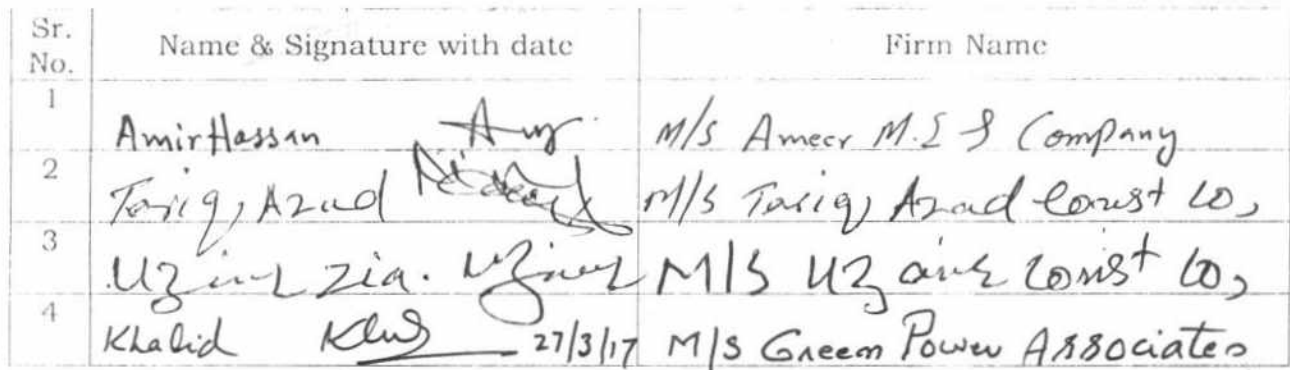 Sr. No. Name & Signature with date Firm Name
1 Amir Hassan M/S Ameer M.E S Company
2 Tariq, Azad M/S Tariq, Azad Const Co,
3 Zia. M/S Const Co,
4 Khalid 27/3/17 M/S Green Power Associates